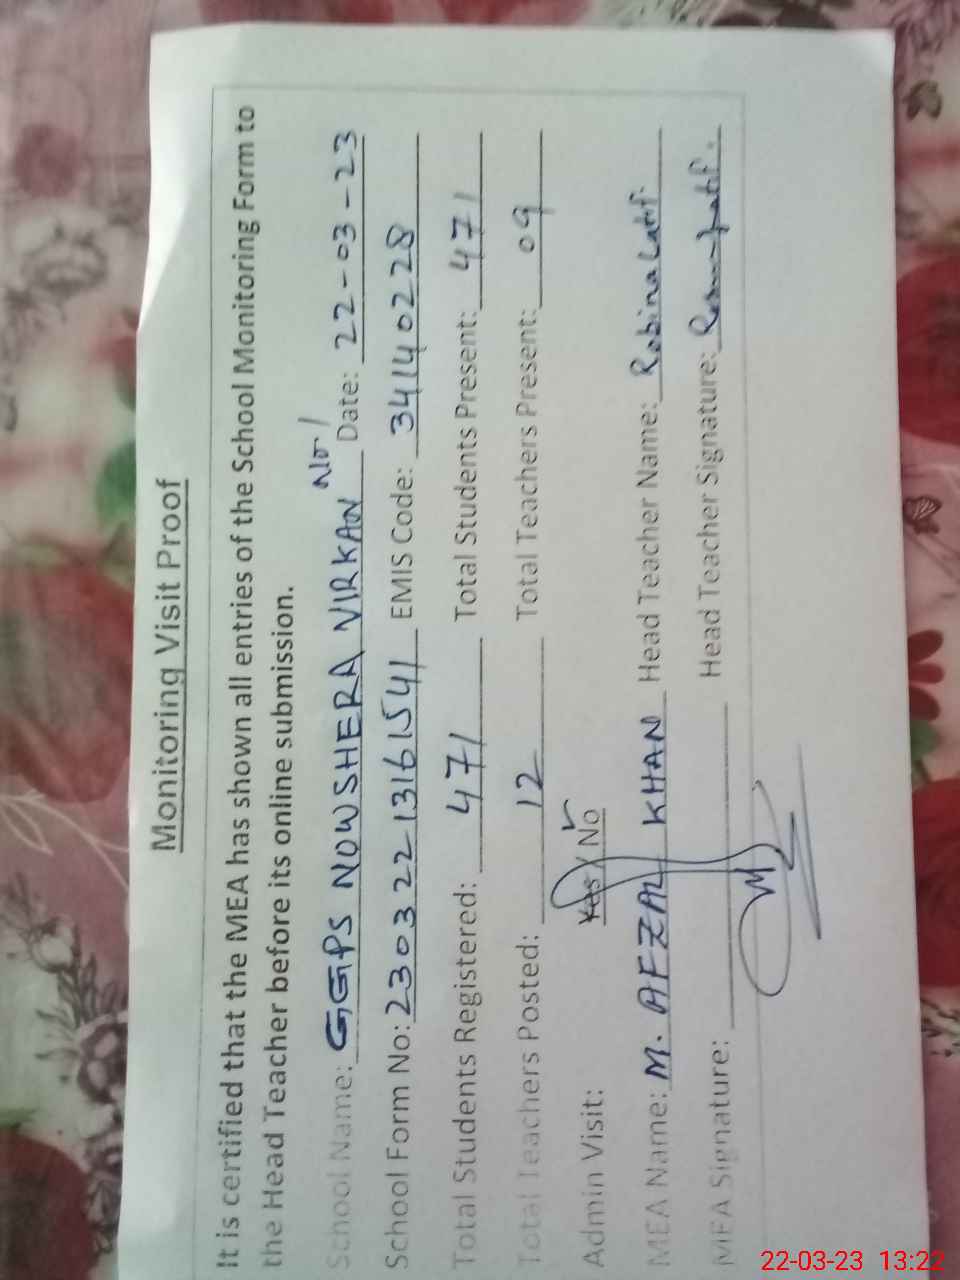 Monitoring Visit Proof
It is certified that the MEA has shown all entries of the School Monitoring Form to
the Head Teacher before its online submission.
School Name: GGPS NOWSHERA VIRKAN No 1 Date: 22-03-23
School Form No: 230322-13161541 EMIS Code: 34140228
Total Students Registered: 471 Total Students Present: 471
Total Teachers Posted: 12 Total Teachers Present: 09
Admin Visit: Yes / No
MEA Name: M. AFZAL KHAN Head Teacher Name: Robina Latif
MEA Signature: Head Teacher Signature:
22-03-23 13:22